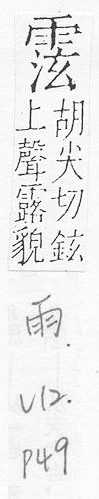 胡尖切鉉
上聲露貌
雨.
V12.
P49